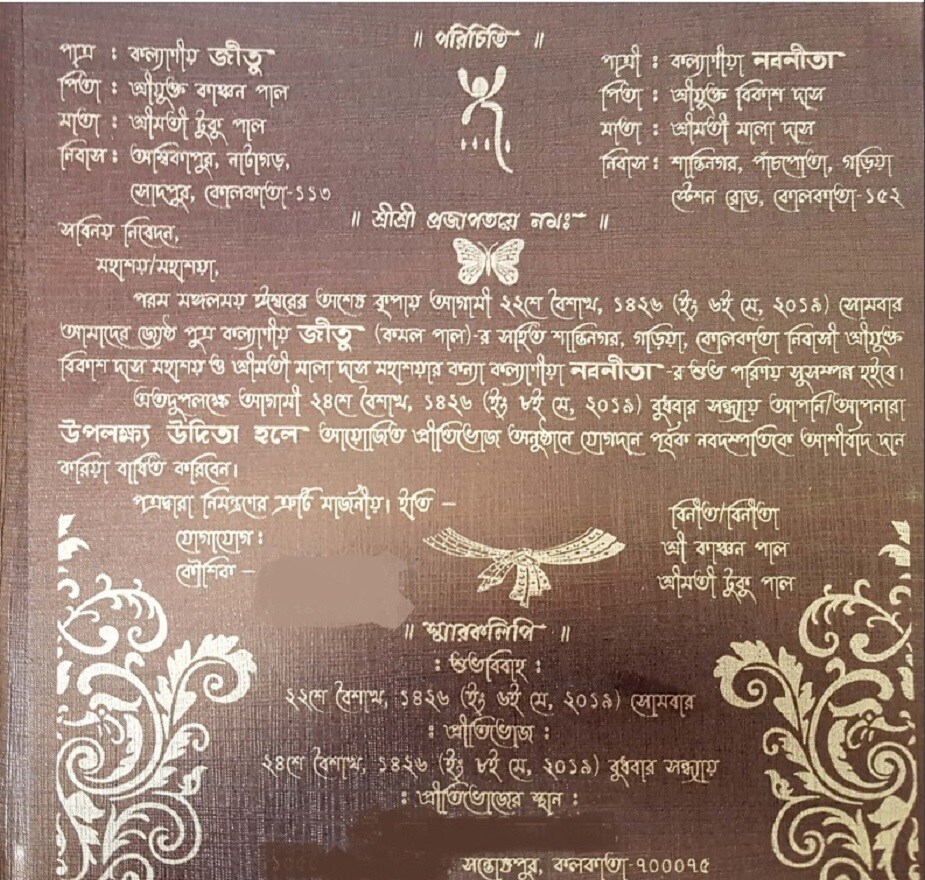 ॥ পরিচিতি ॥
পাত্র : কল্যাণীয় জীতু
পিতা : শ্রীযুক্ত কাঞ্চন পাল
মাতা : শ্রীমতী টুকু পাল
নিবাস : অম্বিকাপুর, নাটাগড়,
সোদপুর, কোলকাতা-১১৩
পাত্রী : কল্যাণীয়া নবনীতা
পিতা : শ্রীযুক্ত বিকাশ দাস
মাতা : শ্রীমতী মালা দাস
নিবাস : শান্তিনগর, পাঁচপোতা, গড়িয়া
স্টেশন রোড, কোলকাতা-১৫২
॥ শ্রীশ্রী প্রজাপতয়ে নমঃ ॥
সবিনয় নিবেদন,
মহাশয়/মহাশয়া,
পরম মঙ্গলময় ঈশ্বরের অশেষ কৃপায় আগামী ২২শে বৈশাখ, ১৪২৬ (ইং ৬ই মে, ২০১৯) সোমবার
আমাদের জ্যেষ্ঠ পুত্র কল্যাণীয় জীতু (কমল পাল)-র সহিত শান্তিনগর, গড়িয়া, কোলকাতা নিবাসী শ্রীযুক্ত
বিকাশ দাস মহাশয় ও শ্রীমতী মালা দাস মহাশয়ার কন্যা কল্যাণীয়া নবনীতা -র শুভ পরিণয় সুসম্পন্ন হইবে।
অতদুপলক্ষে আগামী ২৪শে বৈশাখ, ১৪২৬ (ইং ৮ই মে, ২০১৯) বুধবার সন্ধ্যায় আপনি/আপনারা
উপলক্ষ্য উদিতা হলে আয়োজিত প্রীতিভোজ অনুষ্ঠানে যোগদান পূর্বক নবদম্পতিকে আশীর্বাদ দান
করিয়া বাধিত করিবেন।
পত্রদ্বারা নিমন্ত্রণের ত্রুটি মার্জনীয়। ইতি –
বিনীত/বিনীতা
শ্রী কাঞ্চন পাল
শ্রীমতী টুকু পাল
যোগাযোগ :
কৌশিক –
॥ স্মারকলিপি ॥
: শুভবিবাহ :
২২শে বৈশাখ, ১৪২৬ (ইং ৬ই মে, ২০১৯) সোমবার
: প্রীতিভোজ :
২৪শে বৈশাখ, ১৪২৬ (ইং ৮ই মে, ২০১৯) বুধবার সন্ধ্যায়
: প্রীতিভোজের স্থান :
সন্তোষপুর, কলকাতা-৭০০০৭৫